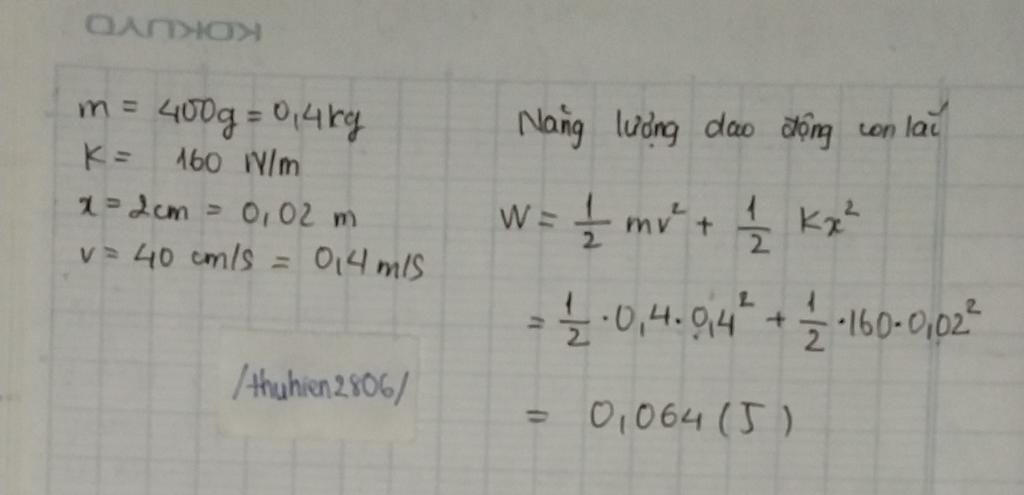 KOKUYO
m = 400g = 0,4kg
K = 160 N/m
x = 2cm = 0,02 m
v = 40 cm/s = 0,4 m/s
/thuhien2806/
Năng lượng dao động con lắc
W = 1/2 mv² + 1/2 Kx²
= 1/2 · 0,4 · 0,4² + 1/2 · 160 · 0,02²
= 0,064 (J)